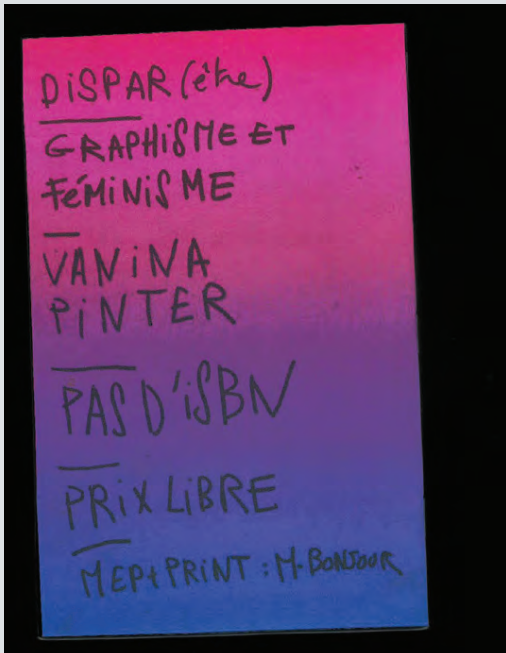 DiSPAR (être)
GRAPHiSME ET
FéMiNiSME
VANiNA
PiNTER
PAS D'iSBN
PRiX LiBRE
MEP+PRiNT : M. BONJOUR